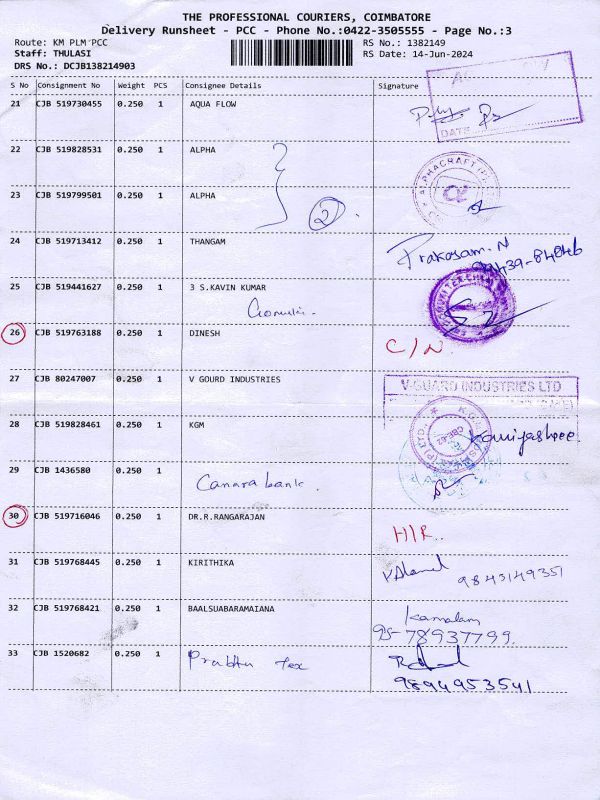 THE PROFESSIONAL COURIERS, COIMBATORE
Delivery Runsheet - PCC - Phone No.:0422-3505555 - Page No.:3
Route: KM PLM PCC RS No.: 1382149
Staff: THULASI RS Date: 14-Jun-2024
DRS No.: DCJB138214903
S No Consignment No Weight PCS Consignee Details Signature
21 CJB 519730455 0.250 1 AQUA FLOW
DATE
22 CJB 519828531 0.250 1 ALPHA
ALPHACRAFT
23 CJB 519799501 0.250 1 ALPHA
2
24 CJB 519713412 0.250 1 THANGAM Prakasam.N
99439-84846
25 CJB 519441627 0.250 1 3 S.KAVIN KUMAR
26 CJB 519763188 0.250 1 DINESH C/N.
27 CJB 80247007 0.250 1 V GOURD INDUSTRIES V-GUARD INDUSTRIES LTD
28 CJB 519828461 0.250 1 KGM
29 CJB 1436580 0.250 1 Canara bank.
30 CJB 519716046 0.250 1 DR.R.RANGARAJAN HIR..
31 CJB 519768445 0.250 1 KIRITHIKA 9843149351
32 CJB 519768421 0.250 1 BAALSUABARAMAIANA Kamalam
95-78937799.
33 CJB 1520682 0.250 1 Prabhu Tex
9894953541